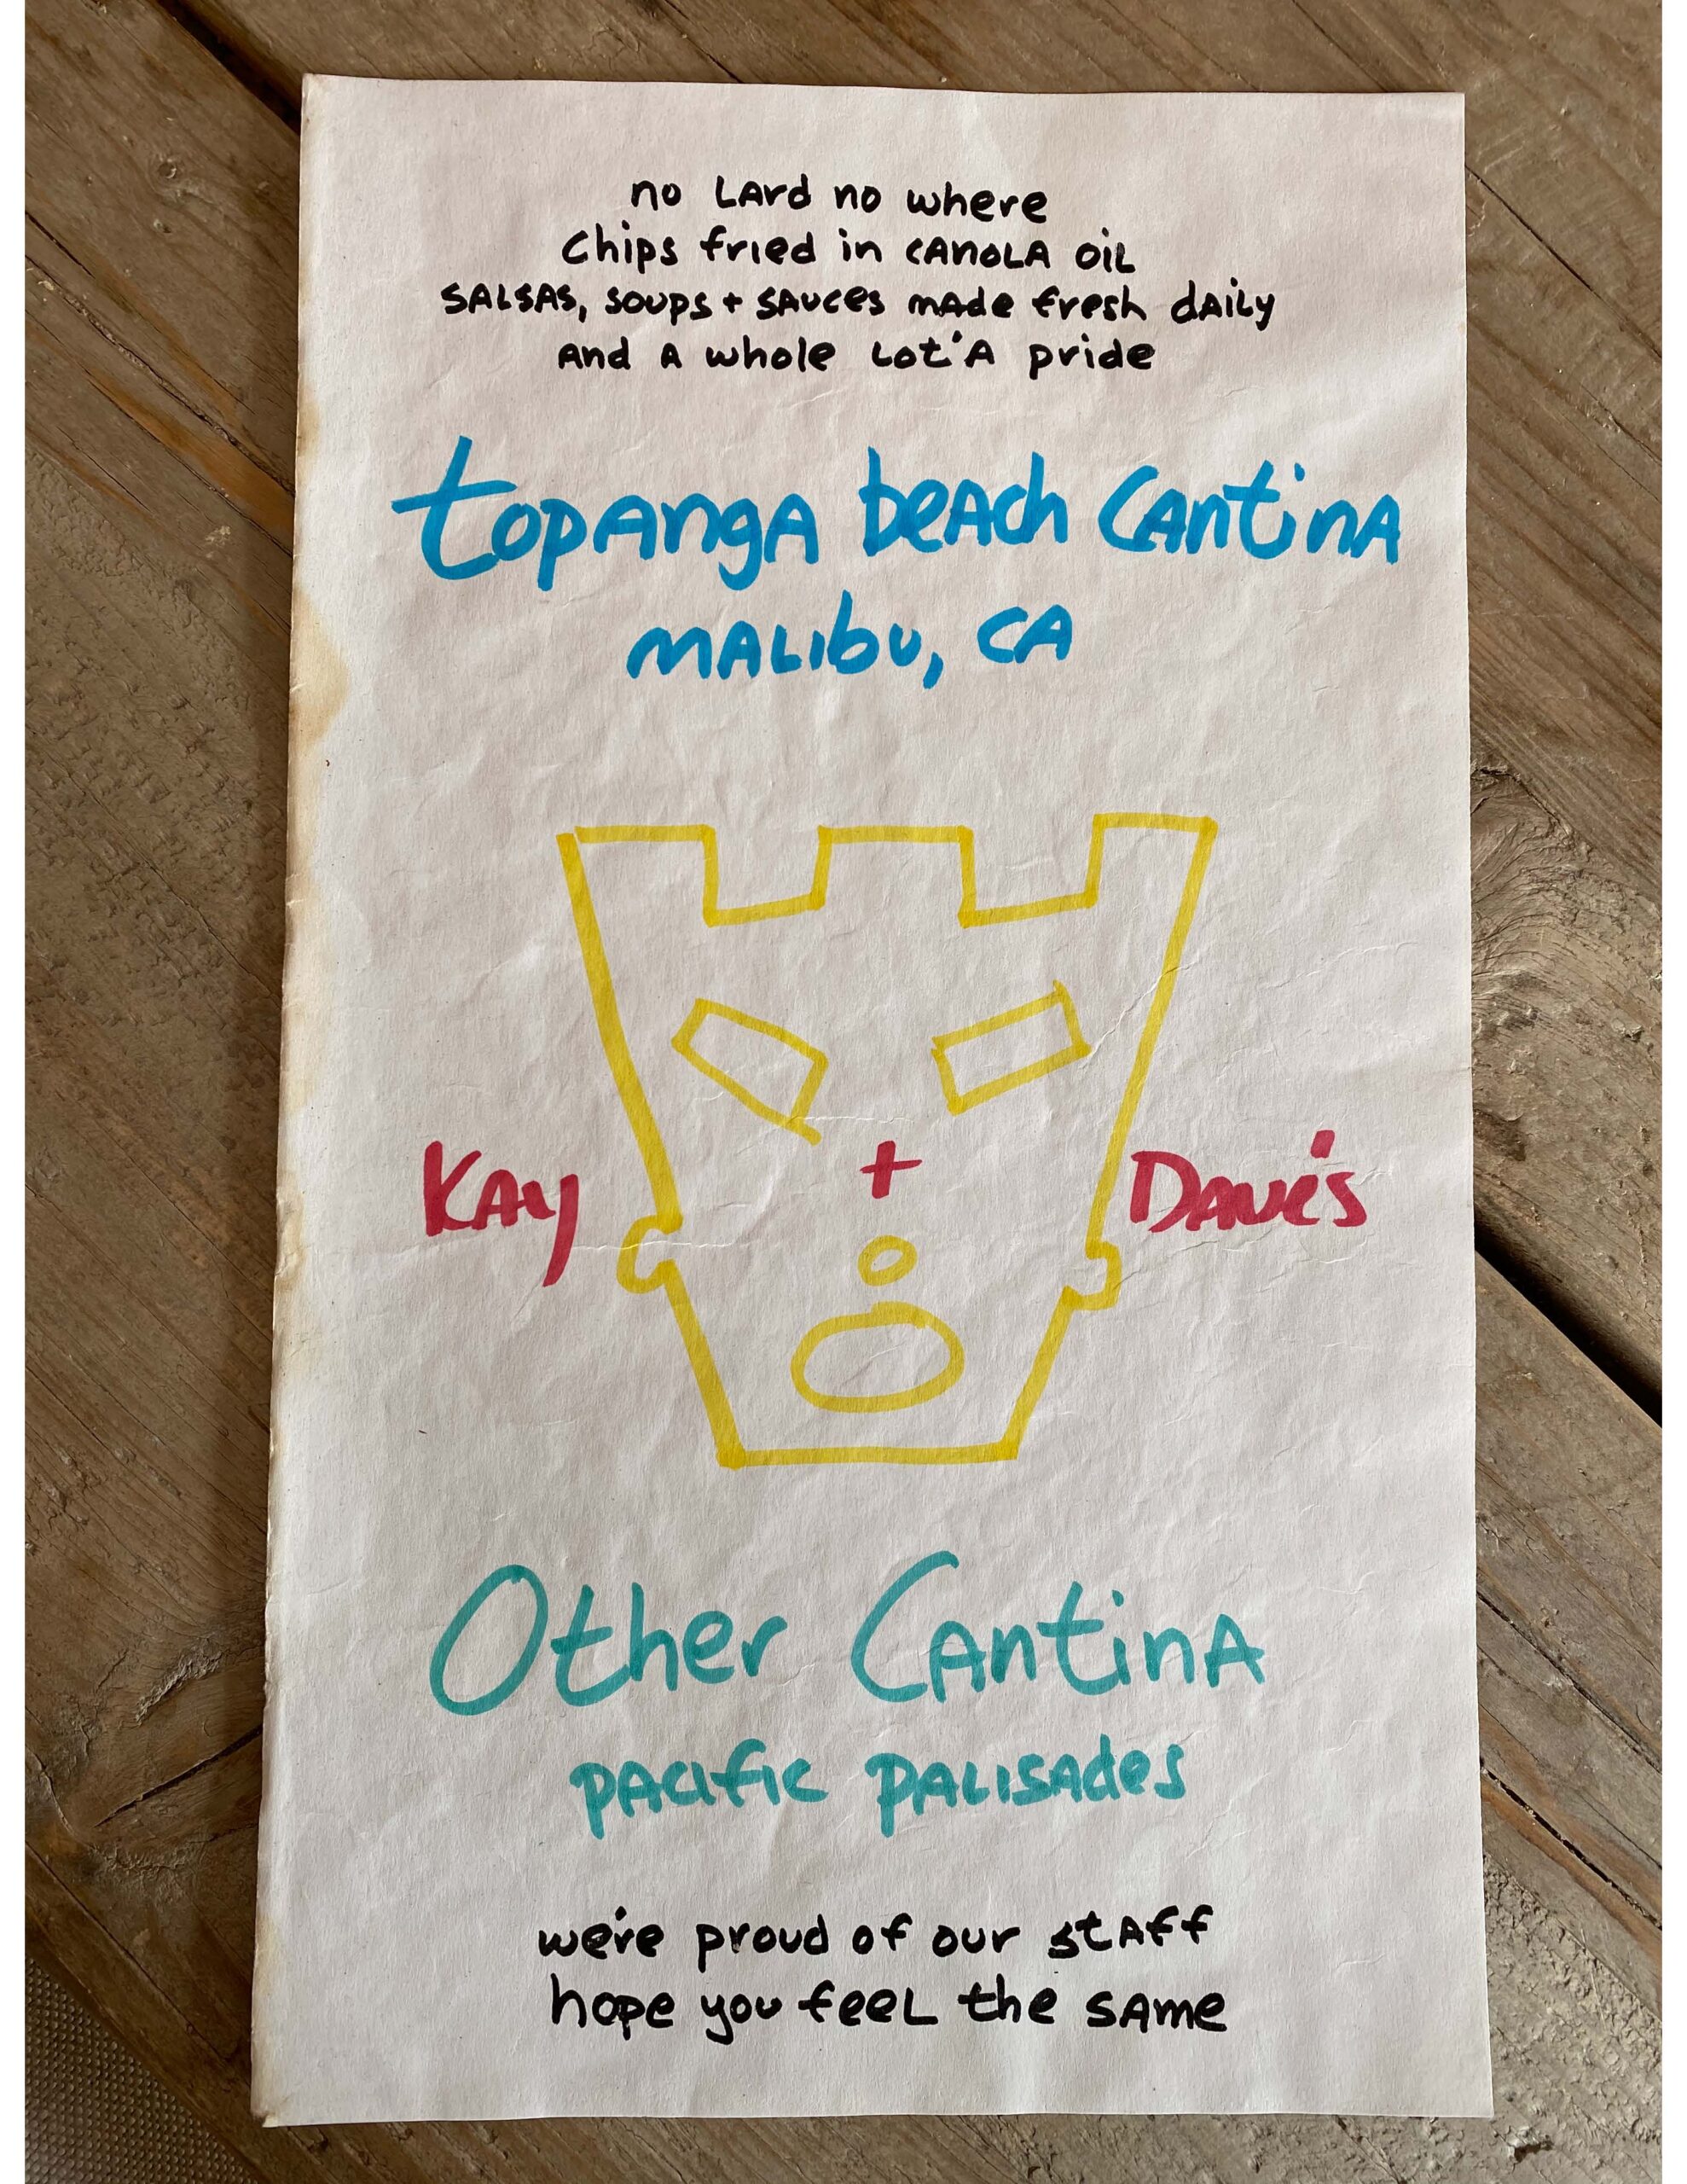 no LArd no where
Chips fried in CANOLA OIL
SALSAS, SOUPS + SAUCES mAde fresh dAILy
And A whole Lot'A pride
topAngA beAch CAntinA
MALibu, CA
KAy + DAve's
Other CAntinA
pAcific pALisAdes
we're proud of our stAff
hope you feeL the sAme